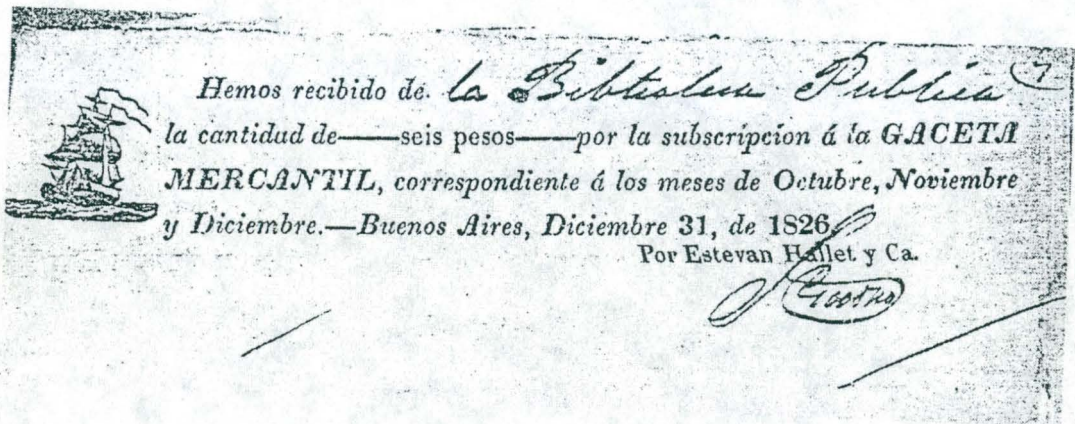 7
Hemos recibido de. la Biblioteca Publica
la cantidad de——seis pesos——por la subscripcion á la GACETA
MERCANTIL, correspondiente á los meses de Octubre, Noviembre
y Diciembre.—Buenos Aires, Diciembre 31, de 1826
Por Estevan Hallet y Ca.